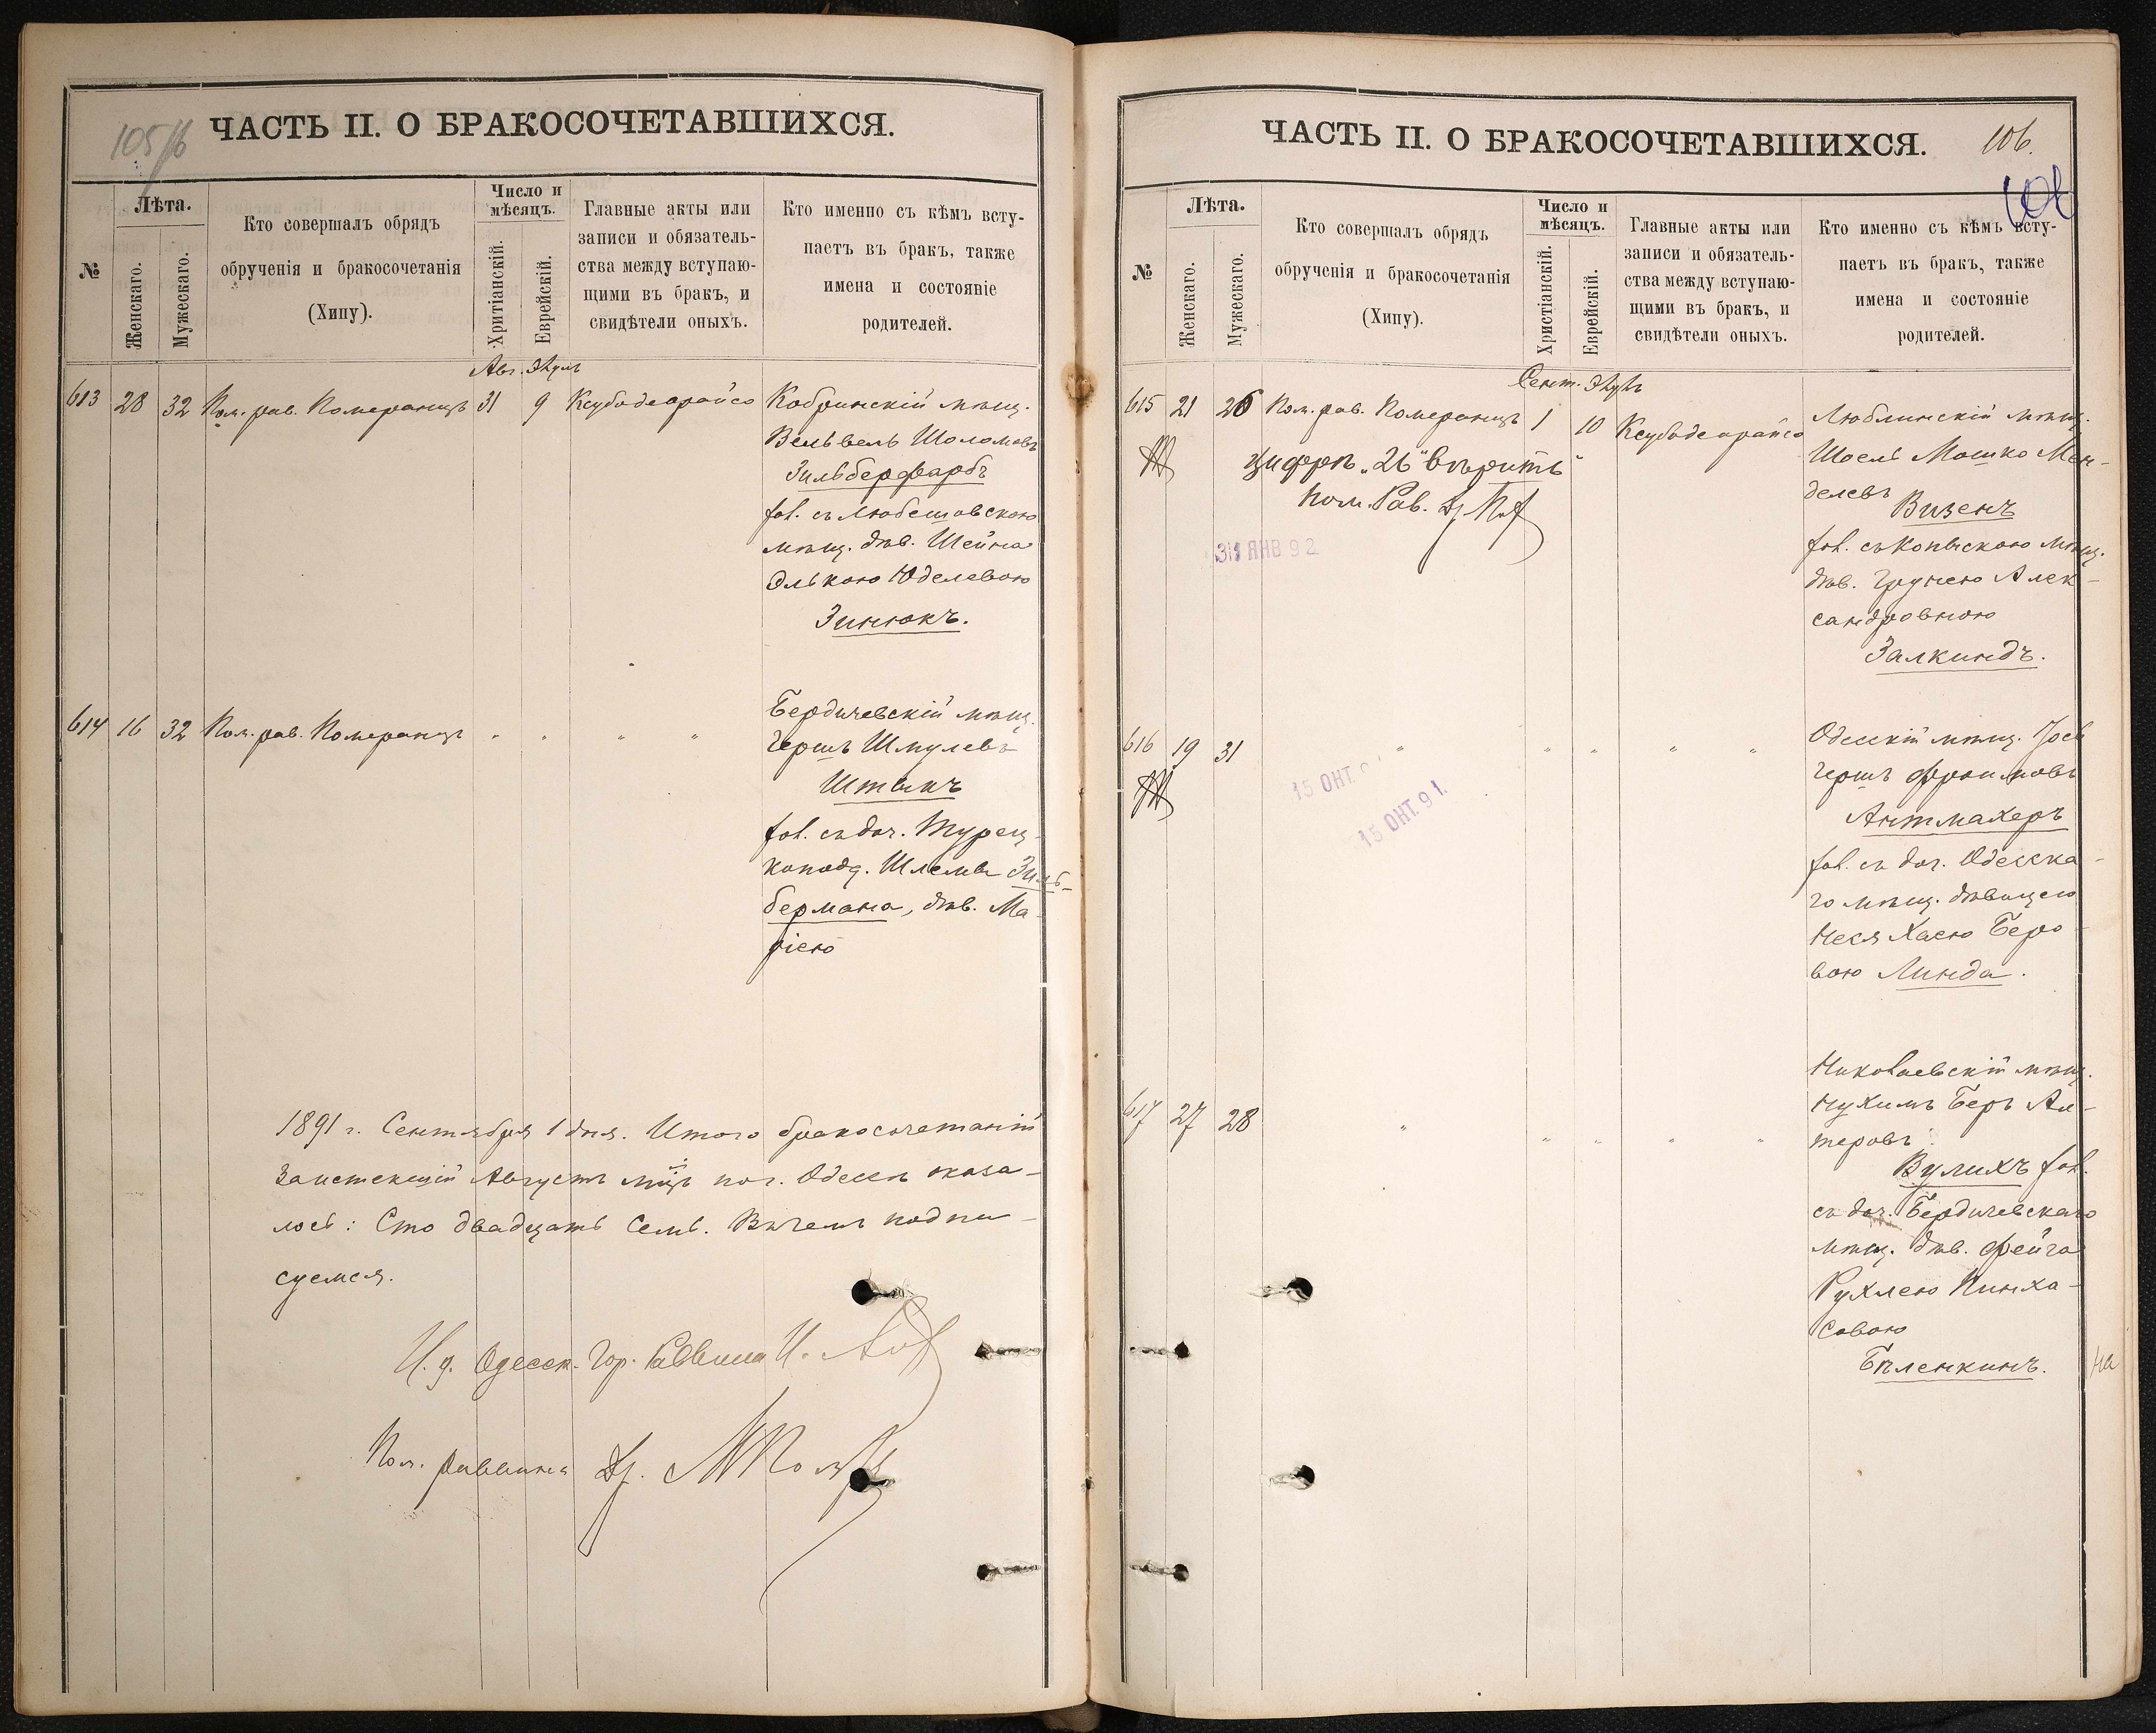 105/б
ЧАСТЬ II. О БРАКОСОЧЕТАВШИХСЯ.
№
Лѣта.
Женскаго.
Мужескаго.
Кто совершалъ обрядъ
обрученія и бракосочетанія
(Хипу).
Число и
мѣсяцъ.
Хритіанскій.
Еврейскій.
Главные акты или
записи и обязатель-
ства между вступаю-
щими въ бракъ, и
свидѣтели оныхъ.
Кто именно съ кѣмъ всту-
паетъ въ бракъ, также
имена и состояніе
родителей.
Авг. Элулъ
613 28 32 Пом. рав. Померанцъ 31 9 Ксубодеорайсо
Кобринскій мѣщ.
Вельвель Шоломовъ
Зильберфарбъ
съ Любешовскою
мѣщ. дѣв. Шейна
Элькою Юделевою
Зинюкъ.
614 16 32 Пом. рав. Померанцъ " " " "
Бердичевскій мѣщ.
Гершъ Шмулевъ
Штыкъ
съ доч. Турец-
коподд. Шлемы Зиль-
бермана, дѣв. Ма-
ріею
1891 г. Сентября 1 дня. Итого бракосочетаній
за истекшій Августъ мц҃ъ по г. Одессѣ оказа-
лось: Сто двадцать семь. Въ чемъ подпи-
суемся.
И. д. Одесск. Гор. Раввина
Пом. раввина Др.
ЧАСТЬ II. О БРАКОСОЧЕТАВШИХСЯ.
106.
106
№
Лѣта.
Женскаго.
Мужескаго.
Кто совершалъ обрядъ
обрученія и бракосочетанія
(Хипу).
Число и
мѣсяцъ.
Христіанскій.
Еврейскій.
Главные акты или
записи и обязатель-
ства между вступаю-
щими въ бракъ, и
свидѣтели оныхъ.
Кто именно съ кѣмъ всту-
паетъ въ бракъ, также
имена и состояніе
родителей.
Сент. Элулъ
615 21 26 Пом. рав. Померанцъ 1 10 Ксубодеорайсо
цифрѣ „26" вѣрить
Пом. Рав. Др.
31 ЯНВ 92
Люблинскій мѣщ.
Шоель Мошко Мен-
делевъ
Визенъ
съ Копысскою мѣщ.
дѣв. Групею Алек-
сандровною
Залкиндъ.
616 19 31 " " " " "
15 ОКТ.
15 ОКТ. 91.
Одесскій мѣщ. Іось
Гершъ Фроимовъ
Антмахеръ
съ доч. Одесска-
го мѣщ. дѣвицею
Неся Хаею Беро-
вою Линда.
617 27 28 " " " " "
Николаевскій мѣщ.
Нухимъ Беръ Ал-
теровъ
Вулихъ
съ доч. Бердичевскаго
мѣщ. дѣв. Фейга
Рухлею Пинха-
совою
Бѣленкинъ.
На